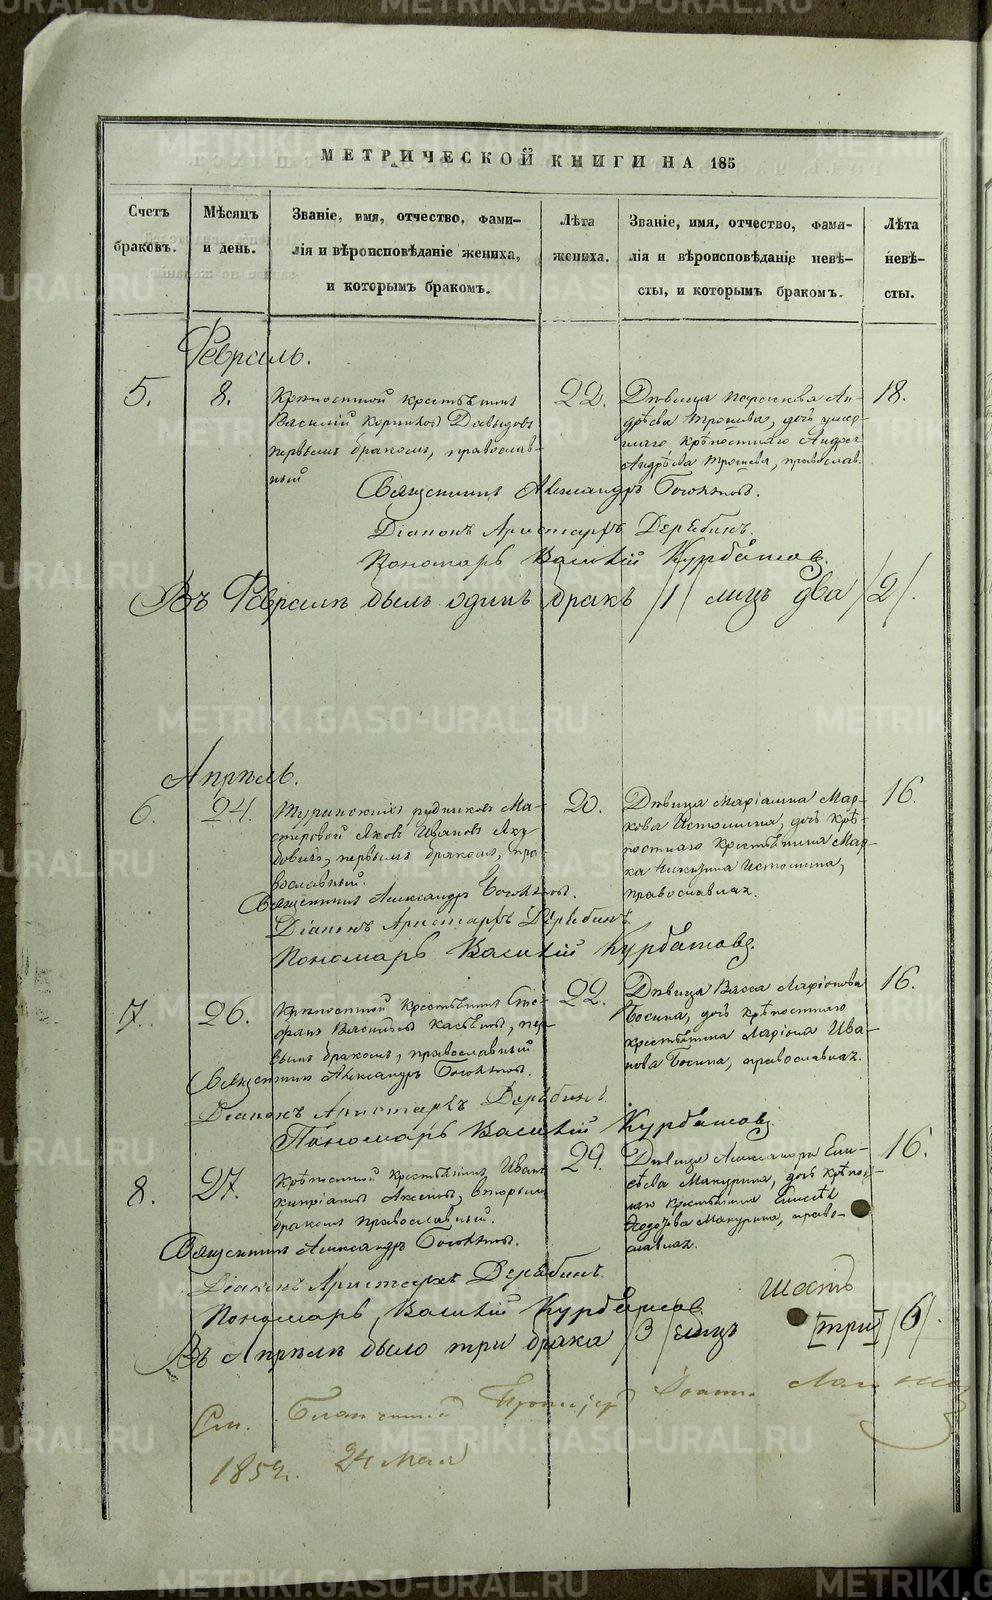 МЕТРИЧЕСКОЙ КНИГИ НА 185
Счетъ браковъ.
Мѣсяцъ и день.
Званіе, имя, отчество, фами-
лія и вѣроисповѣданіе жениха,
и которымъ бракомъ.
Лѣта жениха.
Званіе, имя, отчество, фами-
лія и вѣроисповѣданіе невѣ-
сты, и которымъ бракомъ.
Лѣта невѣ-
сты.
Февраль.
5.
8.
Крѣпостной крестьянинъ
Василій Давыдовъ
первымъ бракомъ, православ-
ный
22.
Дѣвица Ан-
дрѣева Трошева, дочь умер-
шаго крѣпостнаго Андрея
Андрѣева Трошева, православ.
18.
Священникъ Александръ
Діаконъ Аристархъ Дерябинъ.
Пономарь Василій Курбатовъ.
Въ Февралѣ былъ одинъ бракъ /1/ лицъ два /2/.
Апрѣль.
6.
24.
Туринскихъ рудниковъ Ма-
стеровой Яковъ Ивановъ Яку-
бовичъ, первымъ бракомъ, пра-
вославный.
20.
Дѣвица Маріамна Мар-
кова Истомина, дочь крѣ-
постнаго крестьянина Мар-
ка Истомина,
православная.
16.
Священникъ Александръ
Діаконъ Аристархъ Дерябинъ.
Пономарь Василій Курбатовъ.
7.
26.
Крѣпостной крестьянинъ Сте-
фанъ Васильевъ пер-
вымъ бракомъ, православный
22.
Дѣвица Васса Ларіонова
Босина, дочь крѣпостнаго
крестьянина Ларіона Ива-
нова Босина, православная.
16.
Священникъ Александръ
Діаконъ Аристархъ Дерябинъ.
Пономарь Василій Курбатовъ.
8.
27.
Крѣпостной крестьянинъ Иванъ
Кипріановъ вторымъ
бракомъ православный.
29.
Дѣвица Александра Ели-
сѣева Макурина, дочь крѣпос-
наго крестьянина Елисѣя
Макурина, право-
славная.
16.
Священникъ Александръ
Діаконъ Аристархъ Дерябинъ.
Пономарь Василій Курбатовъ.
шесть
Въ Апрѣлѣ было три брака /3/ лицъ [три] /6/.
См. Благочинный Протоіерей
24 Мая
METRIKI.GASO-URAL.RU